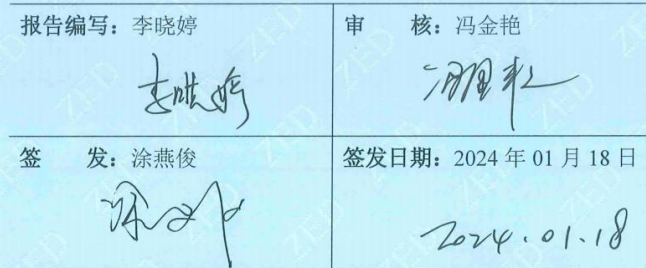 报告编写：李晓婷
审 核：冯金艳
李晓婷
签 发：涂燕俊
签发日期：2024 年 01 月 18 日
2024.01.18
ZED